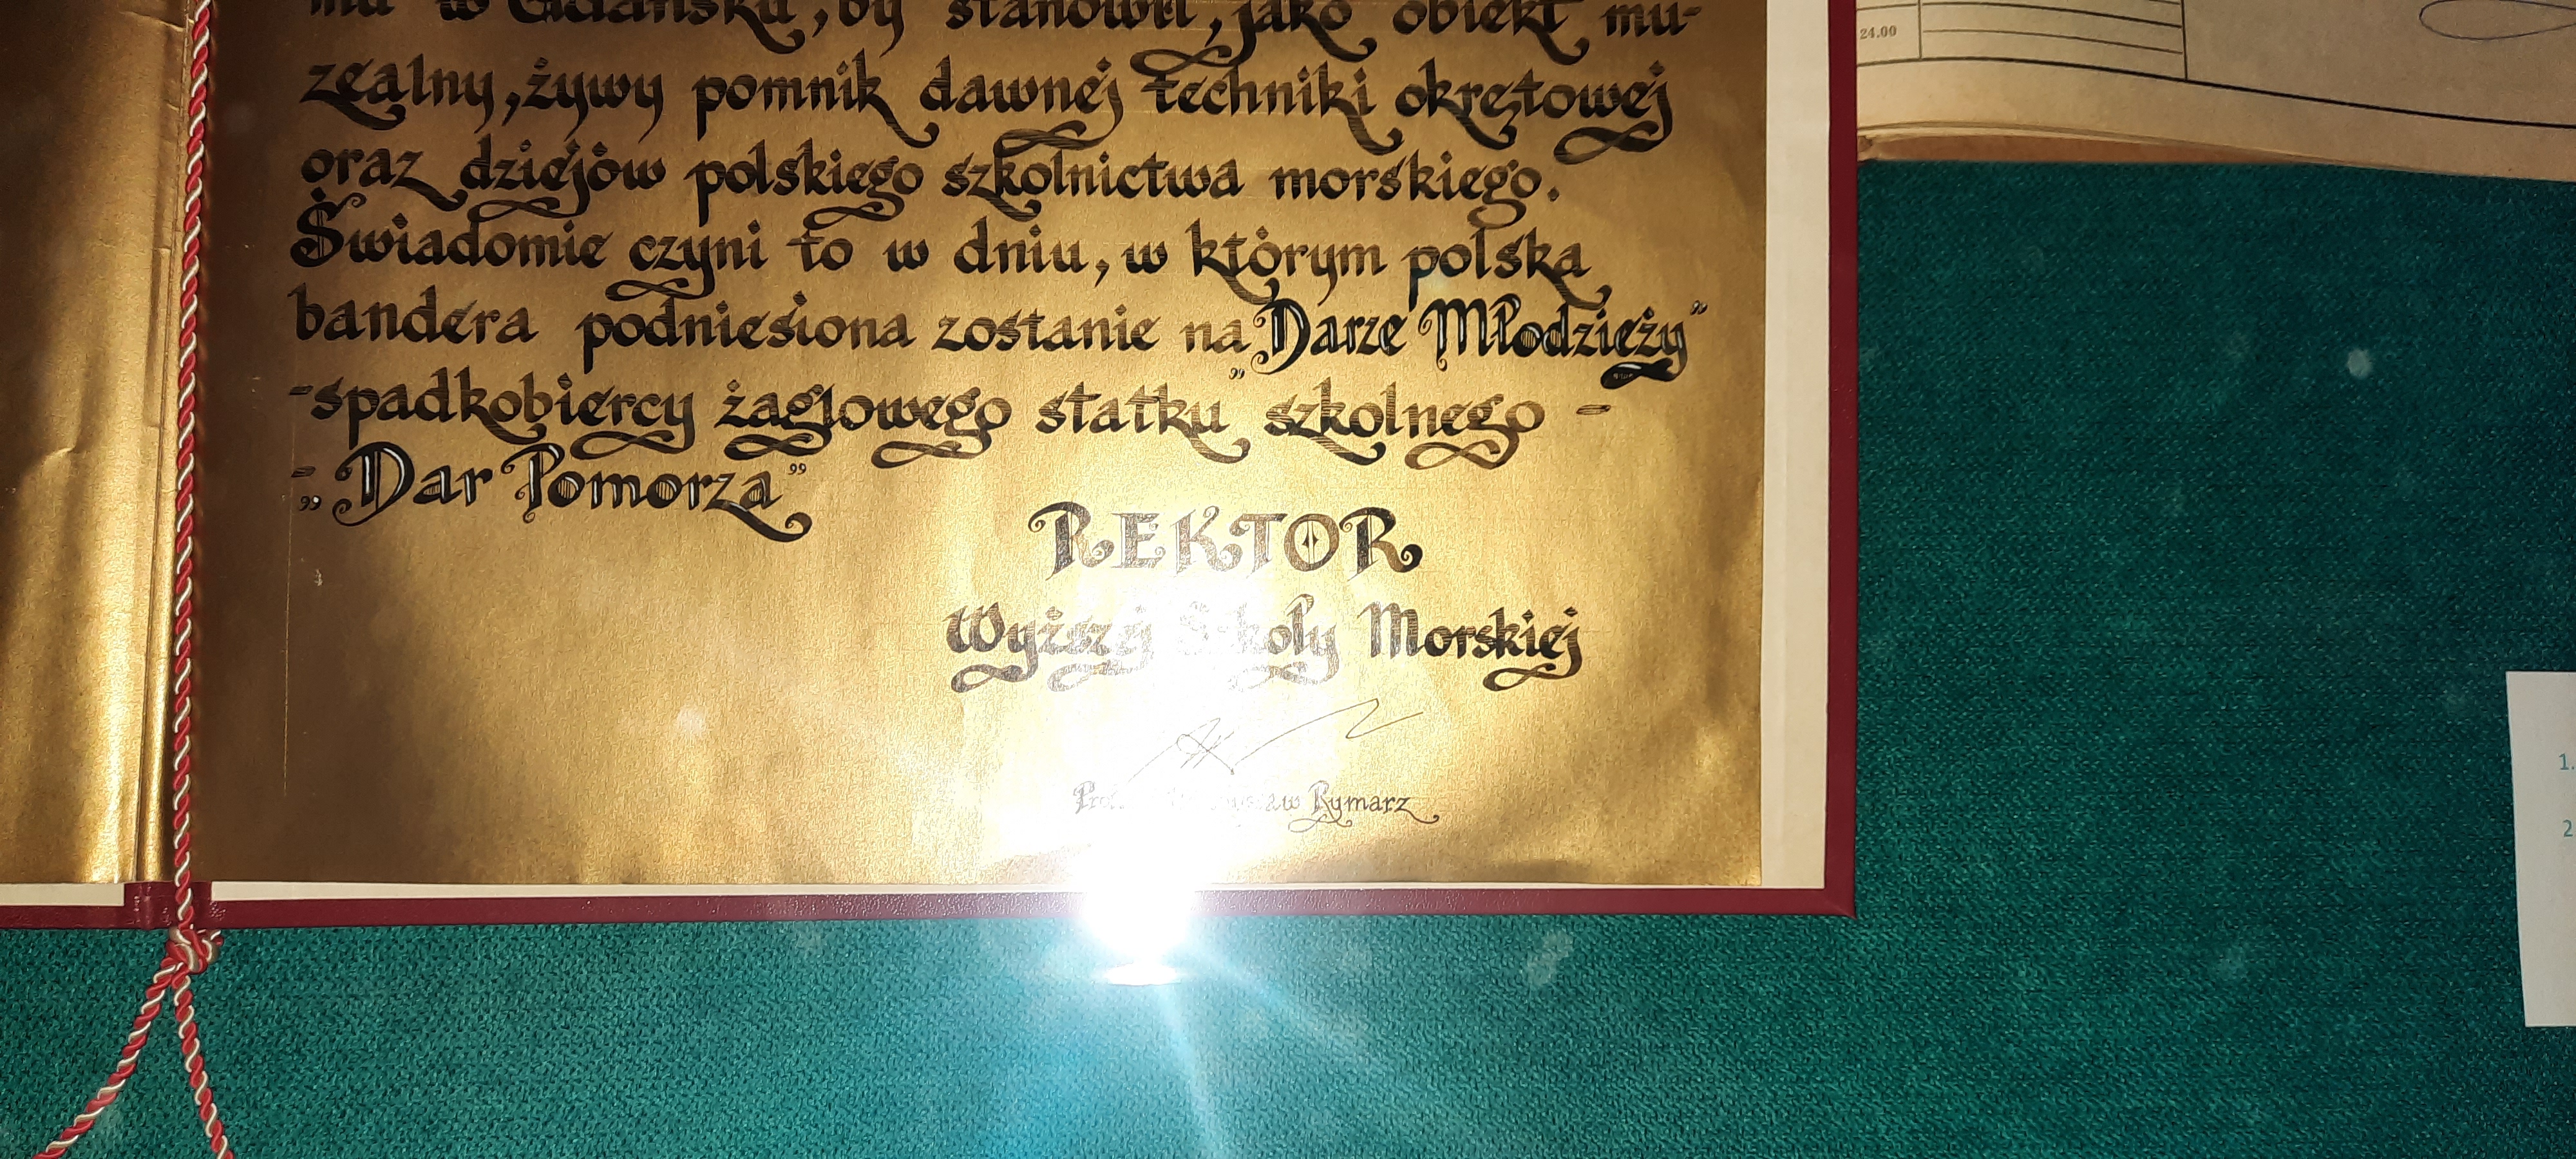 mu w Gdańsku, by stanowił, jako obiekt mu-
zealny, żywy pomnik dawnej techniki okrętowej
oraz dziejów polskiego szkolnictwa morskiego.
Świadomie czyni to w dniu, w którym polska
bandera podniesiona zostanie na „Darze Młodzieży”
-spadkobiercy żaglowego statku szkolnego -
- „Dar Pomorza”
REKTOR
Wyższej Szkoły Morskiej
Rymarz
24.00
1.
2